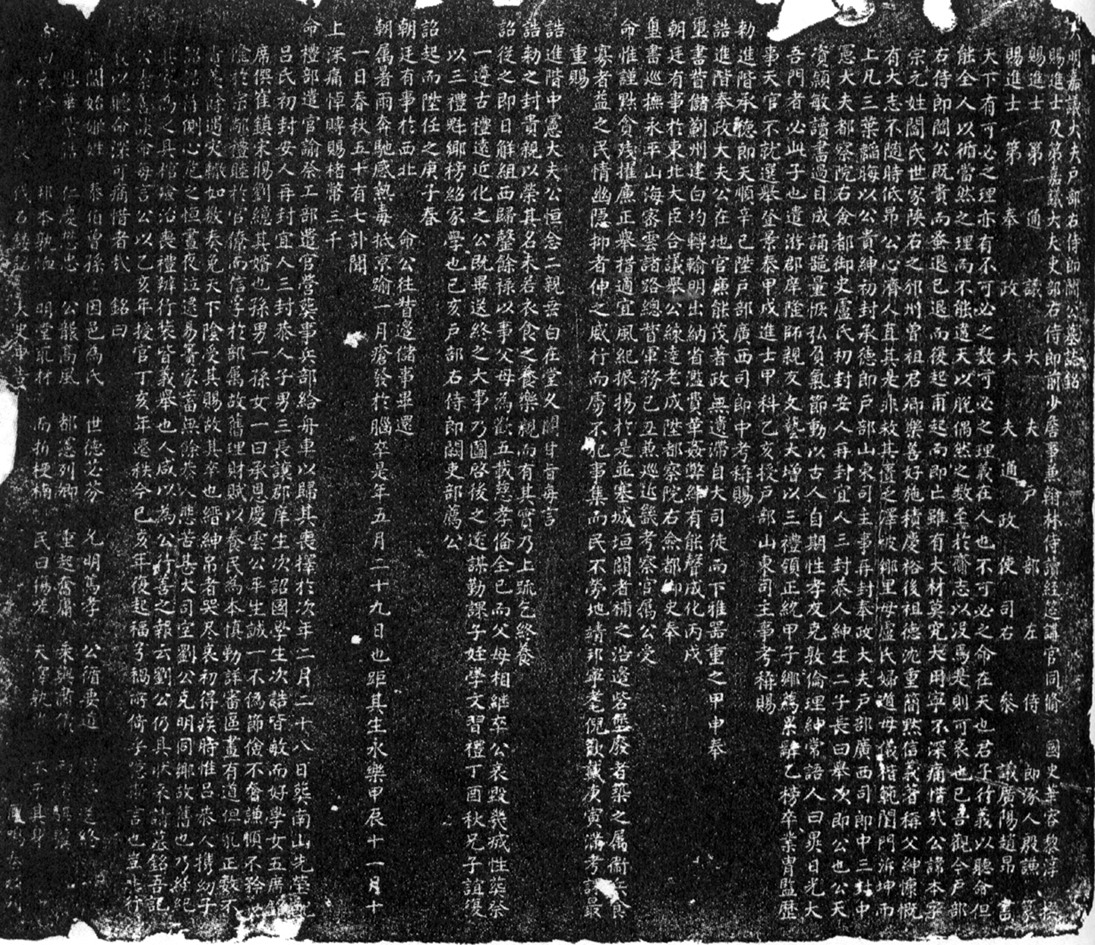 大明嘉議大夫戶部右侍郎閻公墓誌銘
賜進士及第嘉議大夫吏部右侍郎前少詹事兼翰林侍讀經筵講官同脩國史華容黎淳撰
賜進士第通議大夫戶部左侍郎涿人殷謙篆
賜進士第奉政大夫通政使司右叅議廣陽趙昂書
天下有可必之理亦有不可必之数可必之理義在人也不可必之命在天也君子行義以聽命但
能全人以循當然之理而不能違天以脫偶然之数至於齎志以没焉是則可哀也已吾觀今戶部
右侍郎閻公既貴而蚤退已退而後起甫起而即亡雖有大材莫究大用寧不深痛惜哉公諱本字
宗元姓閻氏世家陝右之邠州曽祖君卿樂善好施積慶裕後祖德沈重簡默信義著稱父紳慷慨
有大志不隨時低昂公心濟人直其是非故其置之澤被鄉里母盧氏婦道母儀楷範閨門泝坤而
上凡三葉韜晦以公貴紳初封承德郎戶部山東司主事再封奉政大夫戶部廣西司郎中三封中
憲大夫都察院右僉都御史盧氏初封安人再封宜人三封恭人紳生二子長曰舉次即公也公天
資穎敏讀書過目成誦噐量恢弘負氣節動以古人自期性孝友克敦倫理紳常語人曰異日光大
吾門者必此子也遣游郡庠隆師親友文藝大增以三禮領正統甲子鄉薦累辭乙榜卒業胄監歴
事天官不就選舉登景泰甲戌進士甲科乙亥授戶部山東司主事考稱賜
勑進階承德郎天順辛巳陞戶部廣西司郎中考稱賜
誥進階奉政大夫公在地官廉能茂著政無遺滯自大司徒而下雅噐重之甲申奉
璽書督儲薊州建白均轉輸明出納省濫費革姦弊綽有能聲成化丙戌
朝廷有事於東北大臣合議舉公練達老成陞都察院右僉都御史奉
璽書巡撫永平山海密雲諸路總督軍務己丑兼巡近畿考察官属公受
命惟謹黜貪殘推廉正舉措適宜風紀振揚於是並塞城垣關者補之沿邊營壘廢者築之属衛兵食
寡者益之民情幽隱抑者伸之威行而虜不犯事集而民不勞地靖邦寧老倪歡戴庚寅滿考課最
重賜
誥進階中憲大夫公恒念二親垂白在堂久闕甘旨每言
誥勑之封貴親以榮其名未若衣食之養樂親而有其實乃上疏乞終養
詔從之即日觧組西歸罄餘禄以事父母為歡五載忠孝俻全已而父母相継卒公哀毀幾滅性塟祭
一遵古禮遠近化之公既畢送終之大事乃圖啓後之遠謀勤課子姪學文習禮丁酉秋兄子誼復
以三禮魁鄉榜紹家學也己亥戶部右侍郎闕吏部薦公
詔起而陞任之庚子春
朝廷有事於西北命公往督邊儲事畢還
朝属暑雨奔馳感熱毒抵京踰一月瘡發於腦卒是年五月二十九日也距其生永樂甲辰十一月十
一日春秋五十有七訃聞
上深痛悼時賜楮幣三千
命禮部遣官諭祭工部遣官營葬事兵部給舟車以歸其喪擇於次年二月二十八日葬南山先塋配
吕氏初封安人再封宜人三封恭人子男三長謨郡庠生次詔國學生次誥皆敏而好學女五席
席僎崔鎮宋賜劉纓其婿也孫男一孫女一曰承恩慶雲公平生誠一不偽節儉不奢謙順不矜以
陰於宗部禮睦於官僚而信孚於部属故舊理財賦以養民為本慎勤詳審區畫有道但犯正数不
除遇灾輙如数奏免天下陰受其賜故其卒也縉紳吊者哭尽哀初得疾時惟吕恭人携幼子
側心危之愠晝夜泣遣易簀家畜無餘恭人悲苦甚大司空劉公克明同鄉故舊也乃經紀
為之具棺殮治喪禮辦行裝皆義舉也人咸以為公行善之報云劉公仍具狀来請塟銘吾記
公命每言公以乙亥年授官丁亥年遷秩今己亥年復起福歟禍所倚乎言也豈非行
義以聽命深可痛惜者哉銘曰
閻始姬姓泰伯曽孫因邑為氏世德苾芬光明篤孝公循要道
仁慶公懿高風都憲列卿重起奮庸
邠本明堂取材而折梗楠民曰傷嗟